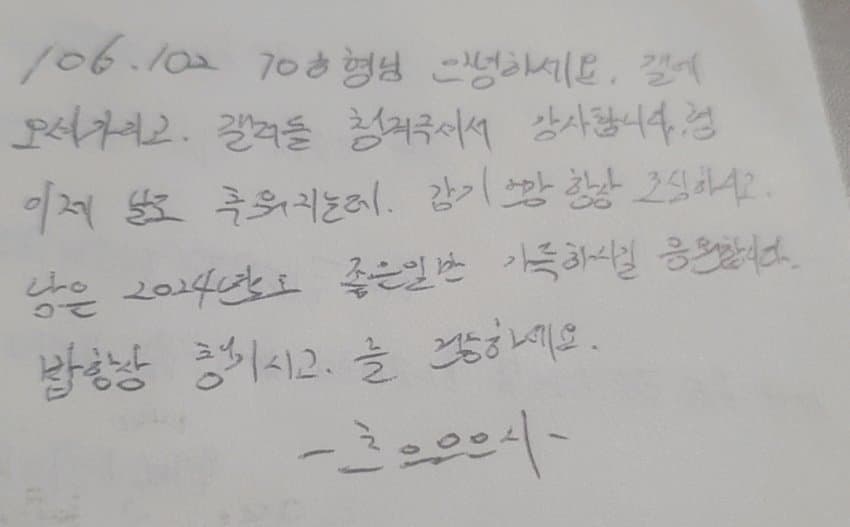 106.102 70호 형님 안녕하세요. 길에
오셔가리고. 갤러들 챙겨주셔서 감사합니다. 형
이제 날도 추워지는데. 감기 항상 조심하시고.
남은 2024년도 좋은일만 가득하시길 응원합니다.
밥항상 챙기시고. 늘 건강하세요.